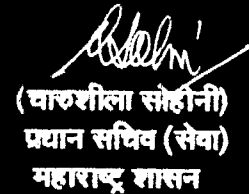 (चारुशीला सोहोनी)
प्रधान सचिव (सेवा)
महाराष्ट्र शासन